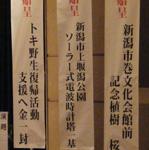 贈呈
新潟市巻文化会館前
記念植樹 桜
贈呈
新潟市上堰潟公園
ソーラー式電波時計塔 一基
贈呈
トキ野生復帰活動
支援へ金一封